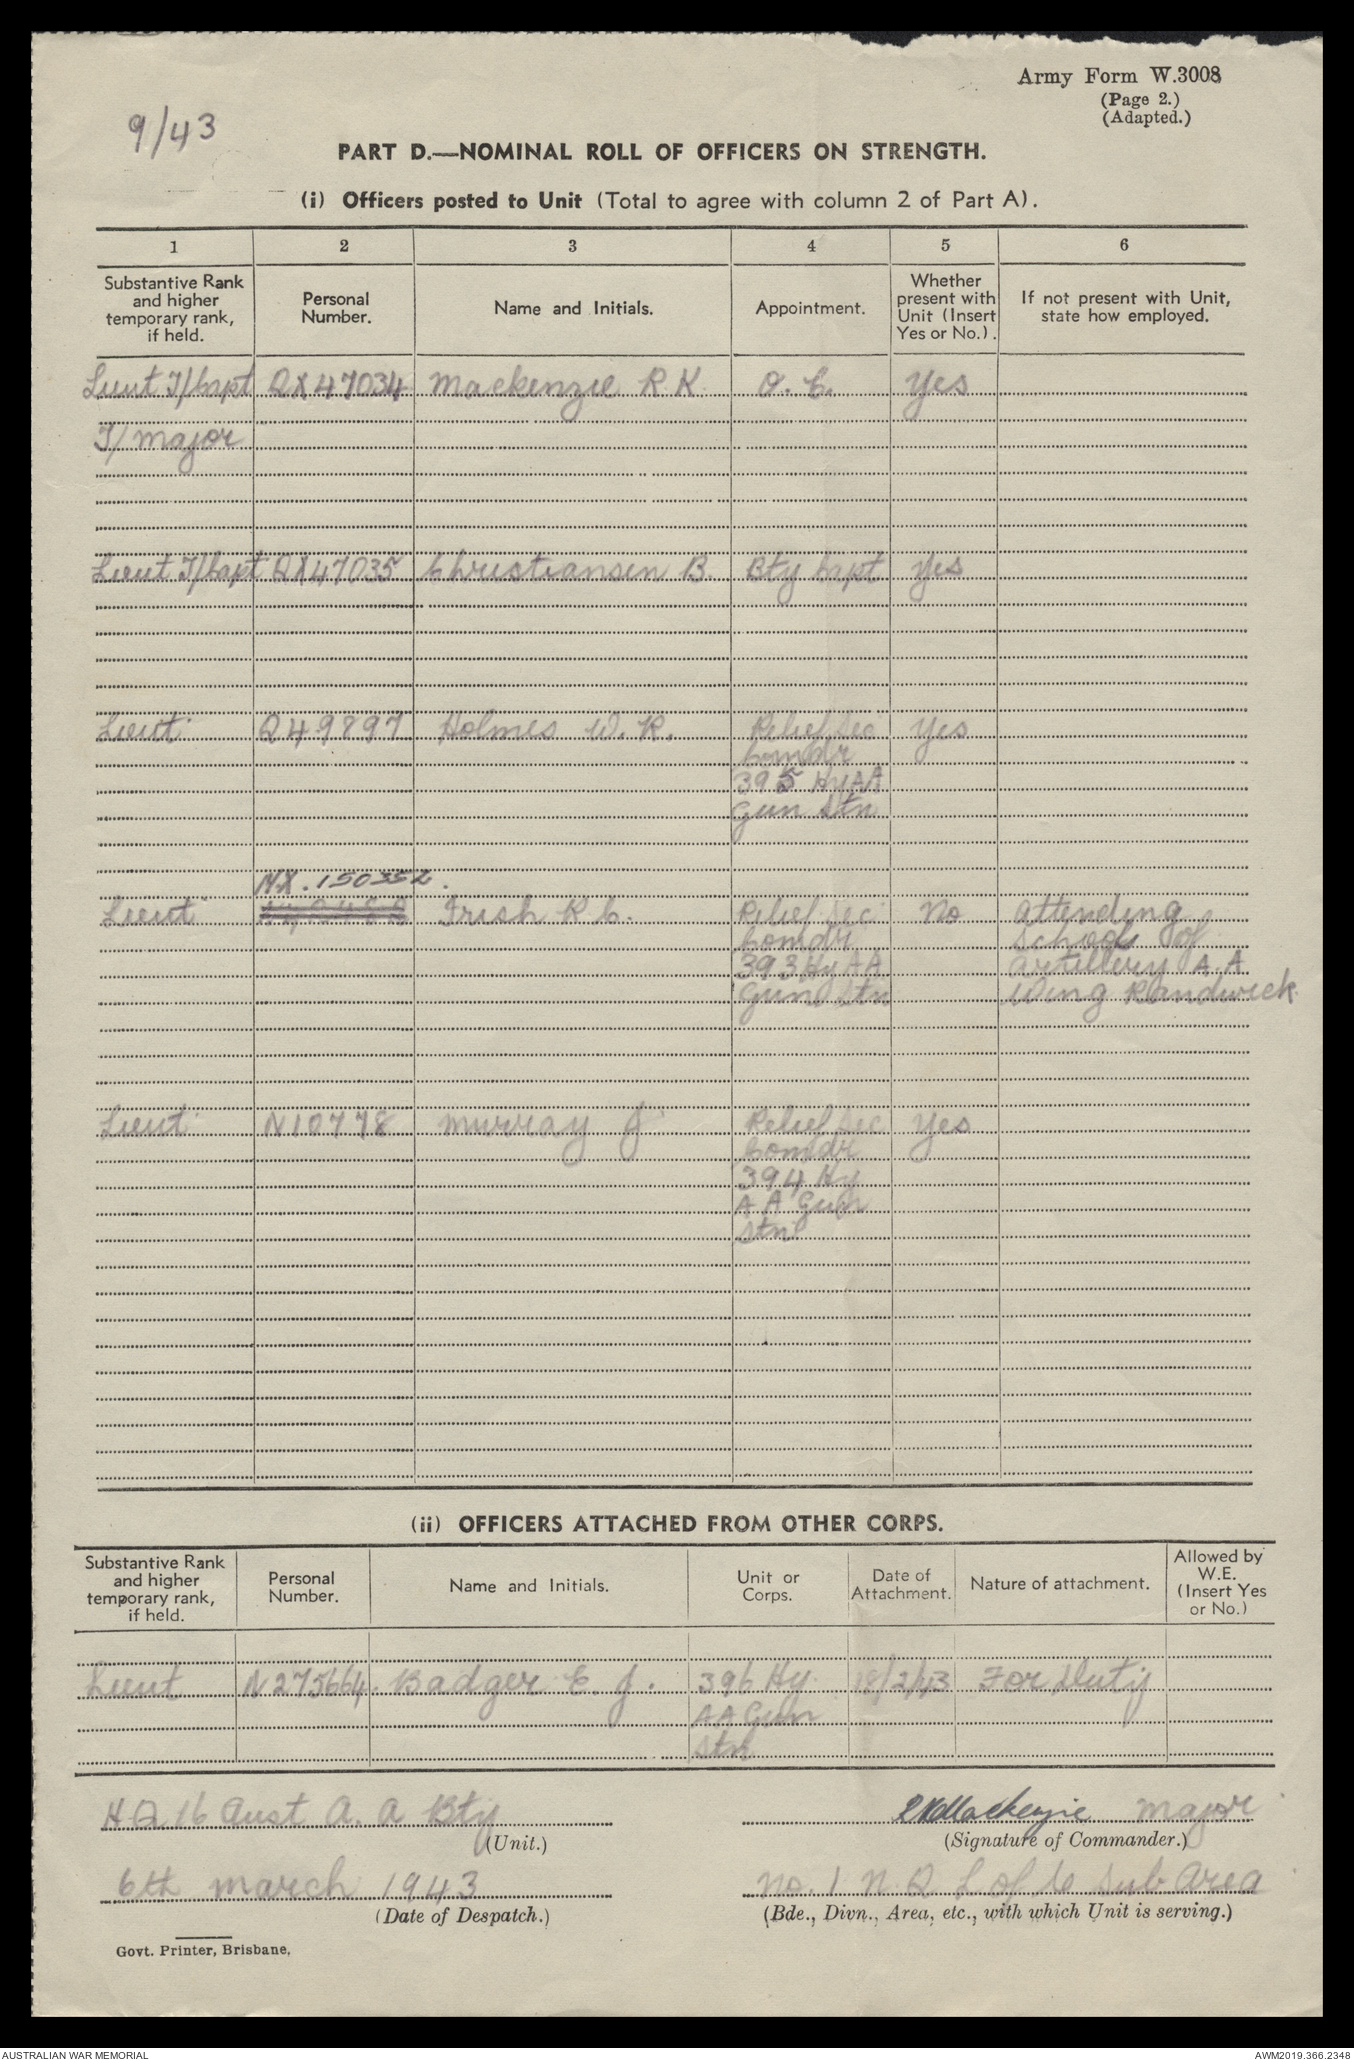 Army Form W.3008
(Page 2.)
(Adapted.)
9/43
PART D.—NOMINAL ROLL OF OFFICERS ON STRENGTH.
(i) Officers posted to Unit (Total to agree with column 2 of Part A).
1 2 3 4 5 6
Substantive Rank and higher temporary rank, if held. Personal Number. Name and Initials. Appointment. Whether present with Unit (Insert Yes or No.). If not present with Unit, state how employed.
Lieut T/Capt QX47034 Mackenzie R K O.C. Yes
T/Major
Lieut T/Capt QX47035 Christiansen B. Bty Capt Yes
Lieut Q49897 Holmes W. R. Relief Sec Yes
Comdr
395 Hy AA
Gun Stn
NX.150352.
Lieut Irish R C. Relief Sec No Attending
Comdr School of
393 Hy AA Artillery A.A
Gun Stn Wing Randwick
Lieut N10778 Murray J Relief Sec Yes
Comdr
394 Hy
A A Gun
Stn
(ii) OFFICERS ATTACHED FROM OTHER CORPS.
Substantive Rank and higher temporary rank, if held. Personal Number. Name and Initials. Unit or Corps. Date of Attachment. Nature of attachment. Allowed by W.E. (Insert Yes or No.)
Lieut N275664 Badger E. J. 396 Hy 18/2/43 For Duty
AA Gun
Stn
HQ 16 Aust A. A Bty
(Unit.)
RKMackenzie Major
(Signature of Commander.)
6th March 1943
(Date of Despatch.)
No. 1 N. Q L of C Sub Area
(Bde., Divn., Area, etc., with which Unit is serving.)
Govt. Printer, Brisbane.
AUSTRALIAN WAR MEMORIAL
AWM2019.366.2348